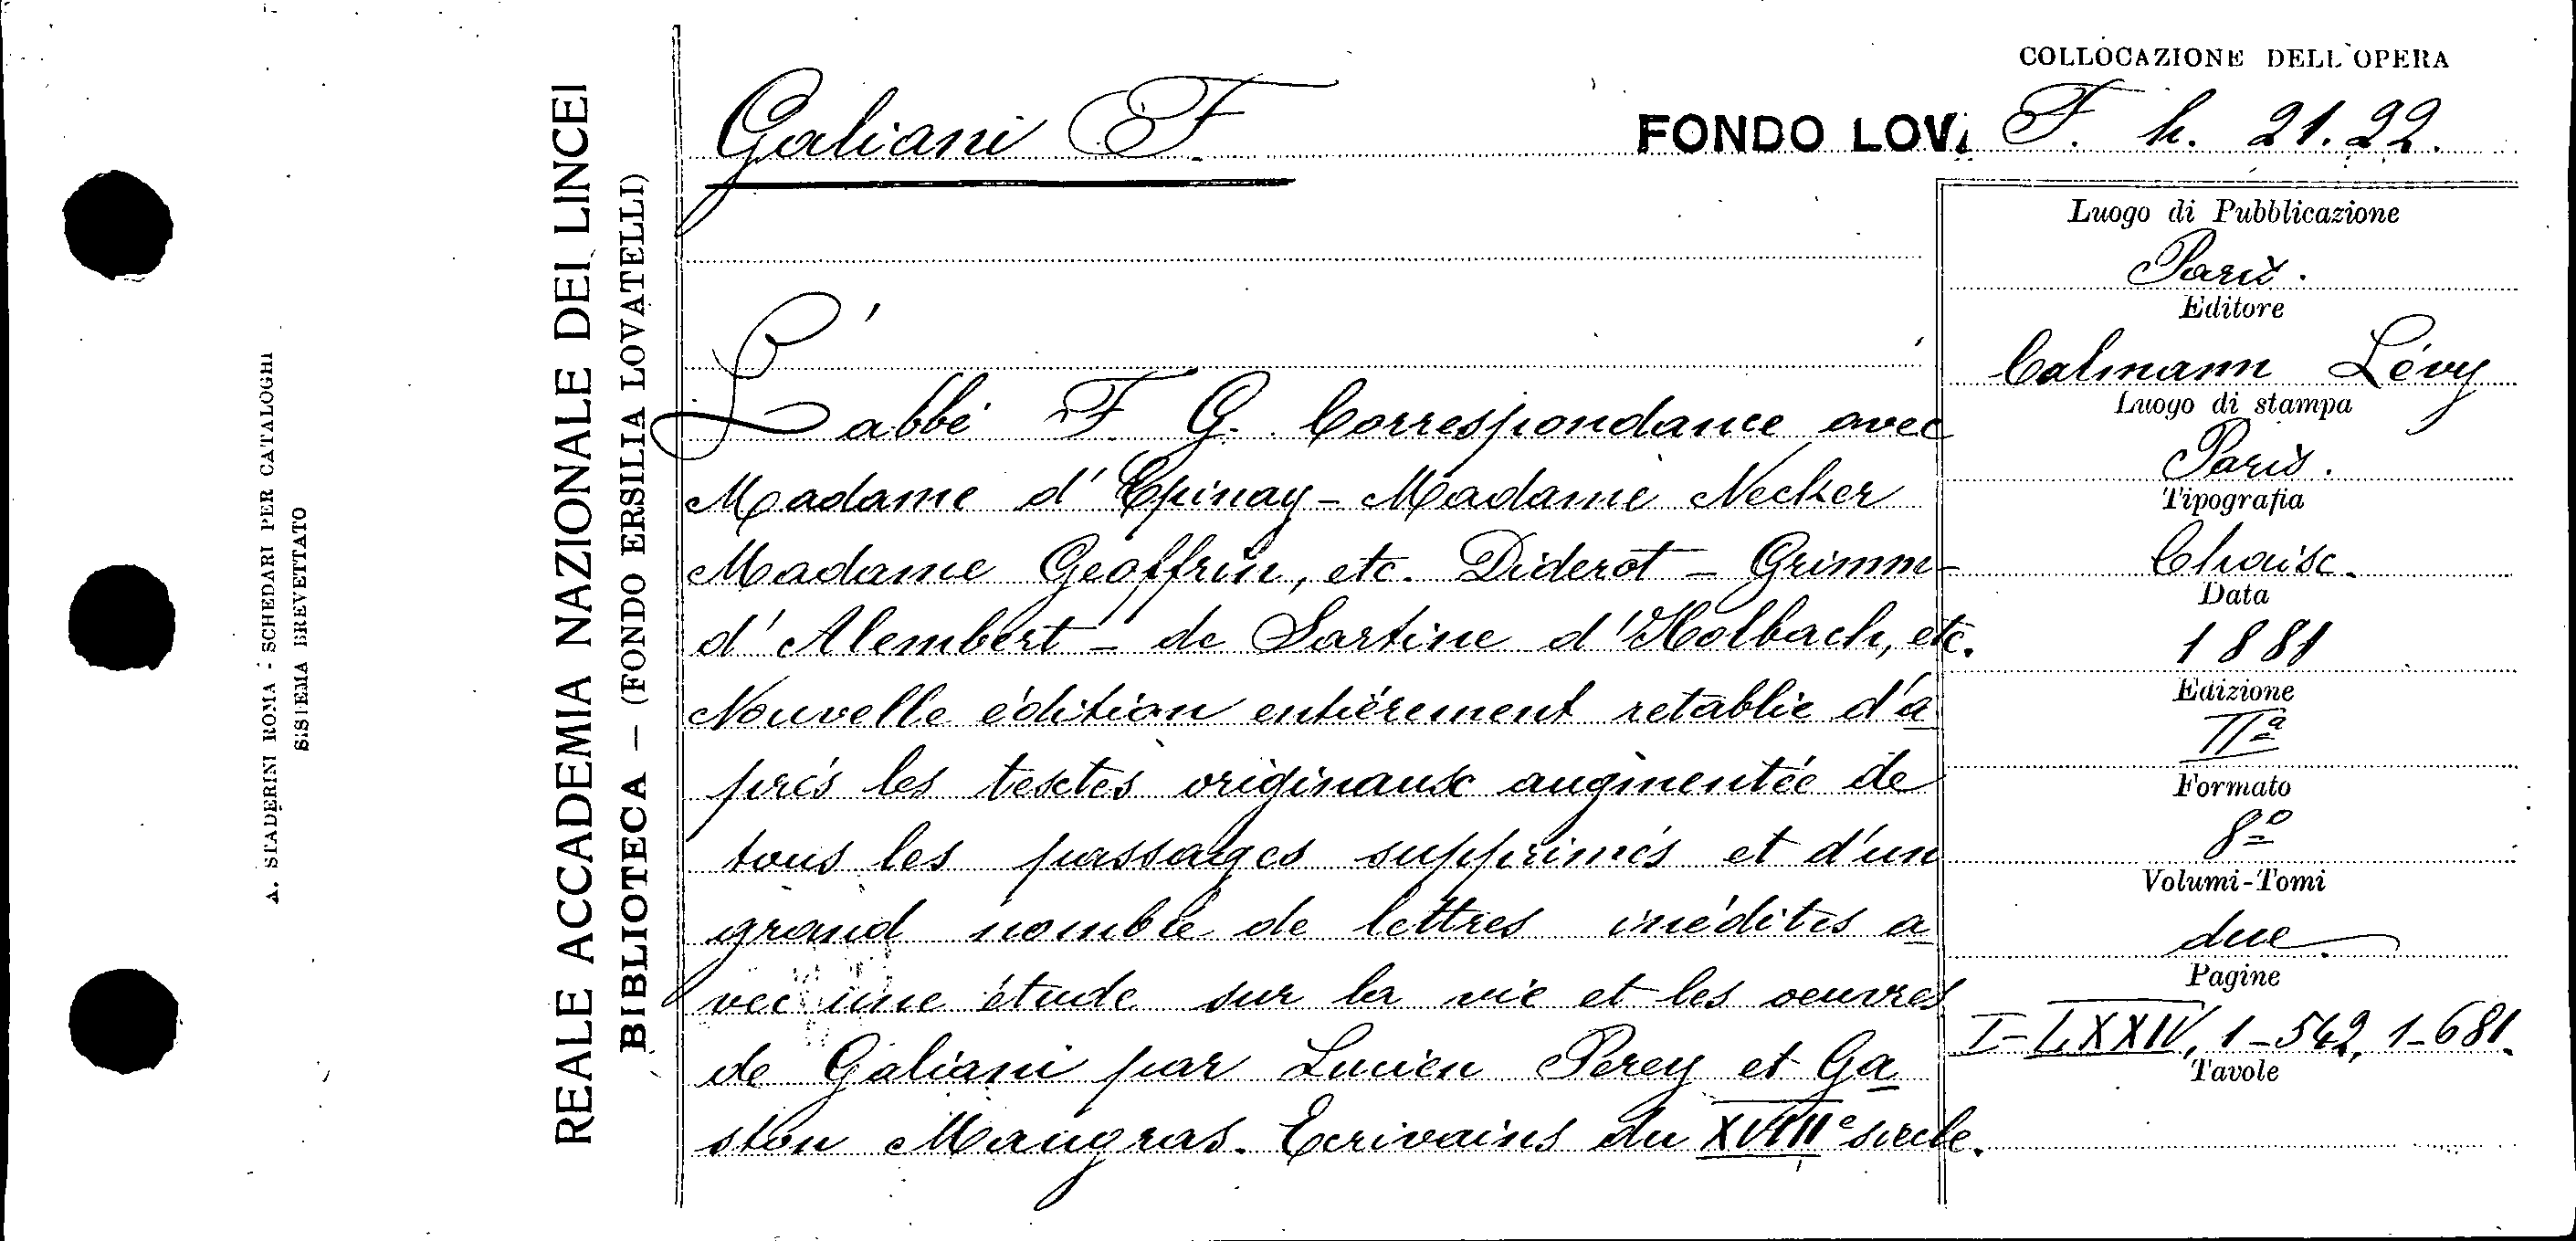 A. STADERINI ROMA - SCHEDARI PER CATALOGHI
SISTEMA BREVETTATO
REALE ACCADEMIA NAZIONALE DEI LINCEI
BIBLIOTECA – (FONDO ERSILIA LOVATELLI)
Galiani F.
FONDO LOV.
COLLOCAZIONE DELL'OPERA
F. h. 21.22.
L'abbé F. G. Correspondance avec
Madame d'Epinay - Madame Necker
Madame Geoffrin, etc. Diderot - Grimm -
d'Alembert - de Sartine d'Holbach, etc.
Nouvelle édition entièrement retablie d'a
prés les textes originaux augmentée de
tous les passages supprimés et d'un
grand nombre de lettres inédites a
vec une étude sur la vie et les oeuvres
de Galiani par Lucien Perey et Ga
ston Maugras. Ecrivains du XVIIIe siecle.
Luogo di Pubblicazione
Paris.
Editore
Calmann Lévy
Luogo di stampa
Paris.
Tipografia
Chaisc.
Data
1881
Edizione
IIa
Formato
8º
Volumi-Tomi
due
Pagine
I-LXXXIV, 1-542, 1-681.
Tavole